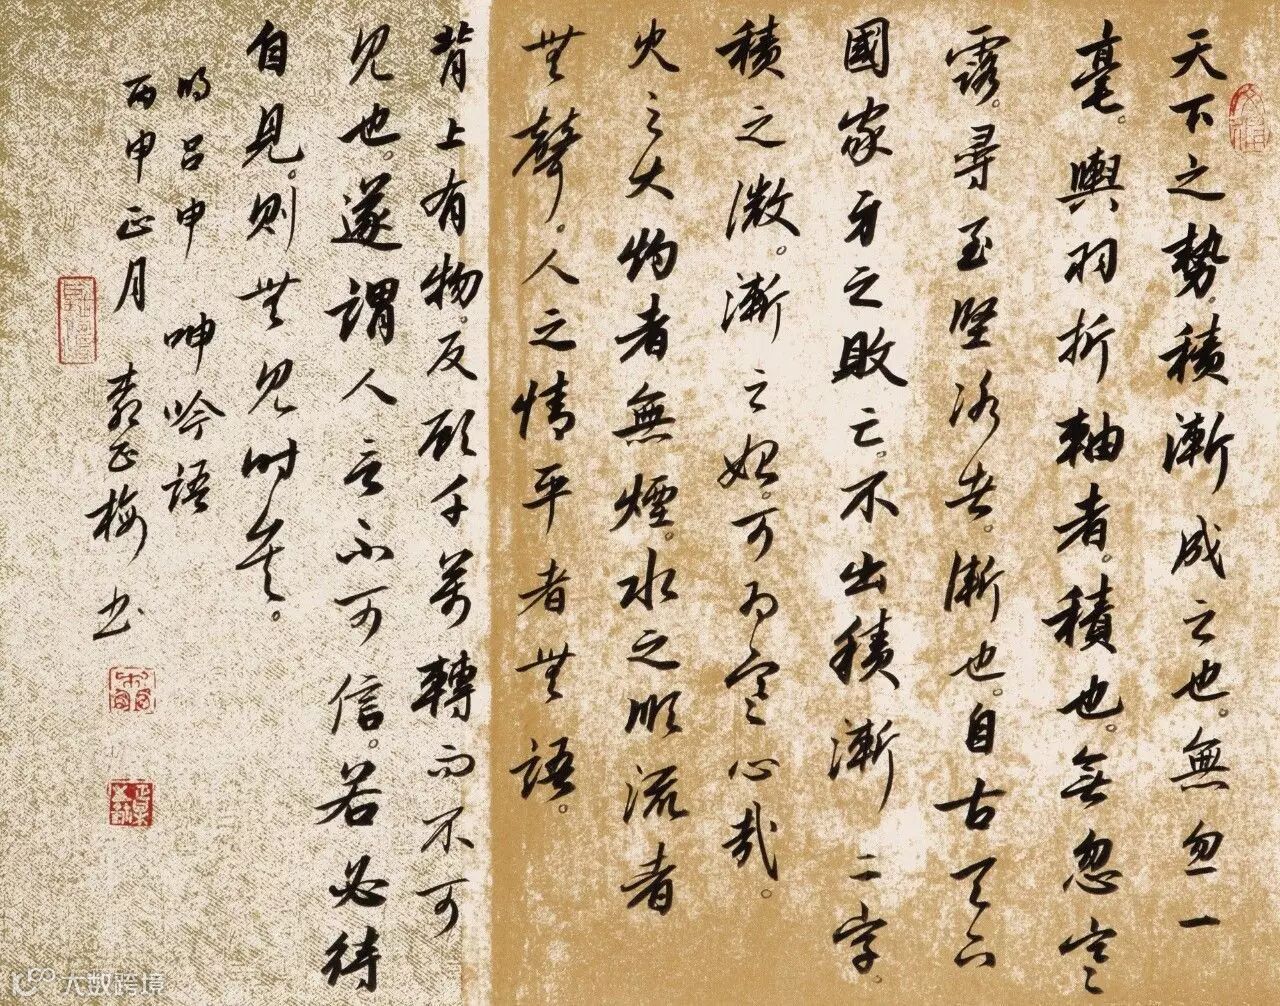 天下之势。積漸成之也。無忽一
毫。輿羽折軸者。積也。無忽寒
露。尋至堅冰者。漸也。自古天下
國家身之敗亡。不出積漸二字。
積之微。漸之始。可为寒心哉。
火之大灼者無煙。水之順流者
無聲。人之情平者無語。
背上有物。反顾千萬轉而不可
见也。遂謂人言不可信。若必待
自見。则無见时矣。
明吕申 呻吟語
丙申正月 袁正梅书
大数跨境